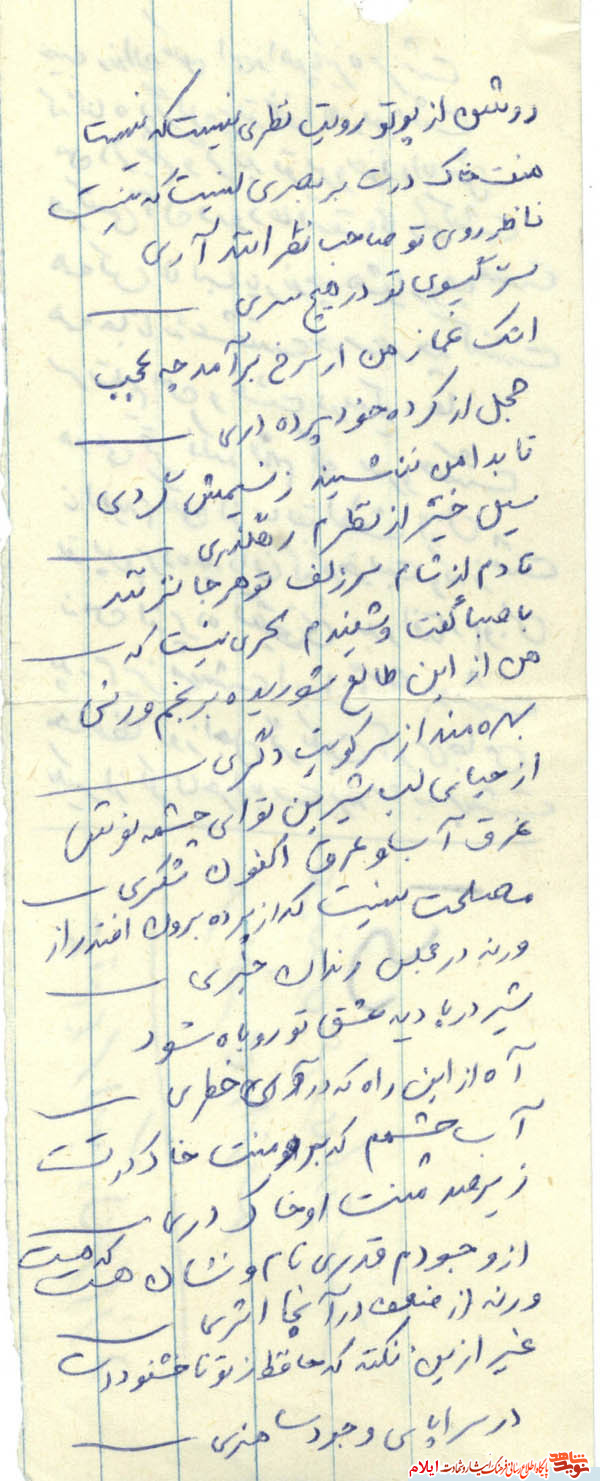 روشن از پرتو رویت نظری نیست که نیست
منت خاک درت بر بصری نیست که نیست
ناظر روی تو صاحب نظرانند آری
سر گیسوی تو در هیچ سری
اشک غماز من ار سرخ برآمد چه عجب
خجل از کرده خود پرده دری
تا بدامن ننشیند ز نسیمش گردی
سیل خیز از نظرم رهگذری
تا دم از شام سر زلف تو هر جا نزند
با صبا گفت و شنیدم سحری نیست که
من از این طالع شوریده برنجم ورنی
بهره مند از سر کویت دگری
از حیای لب شیرین تو ای چشمه نوش
غرق آب و عرق اکنون شکری
مصلحت نیست که از پرده برون افتد راز
ورنه در مجلس رندان خبری
شیر در بادیه عشق تو روباه شود
آه از این راه که در آن خطری
آب چشمم که برو منت خاک درتست
زیر صد منت او خاک دری
از وجودم قدری نام و نشان هست که هست
ورنه از ضعف در آنجا اثری
غیر ازین نکته که حافظ ز تو ناخشنود است
در سراپای وجودت هنری
نوید شاهد
پایگاه اطلاع رسانی فرهنگ ایثار و شهادت ایلام